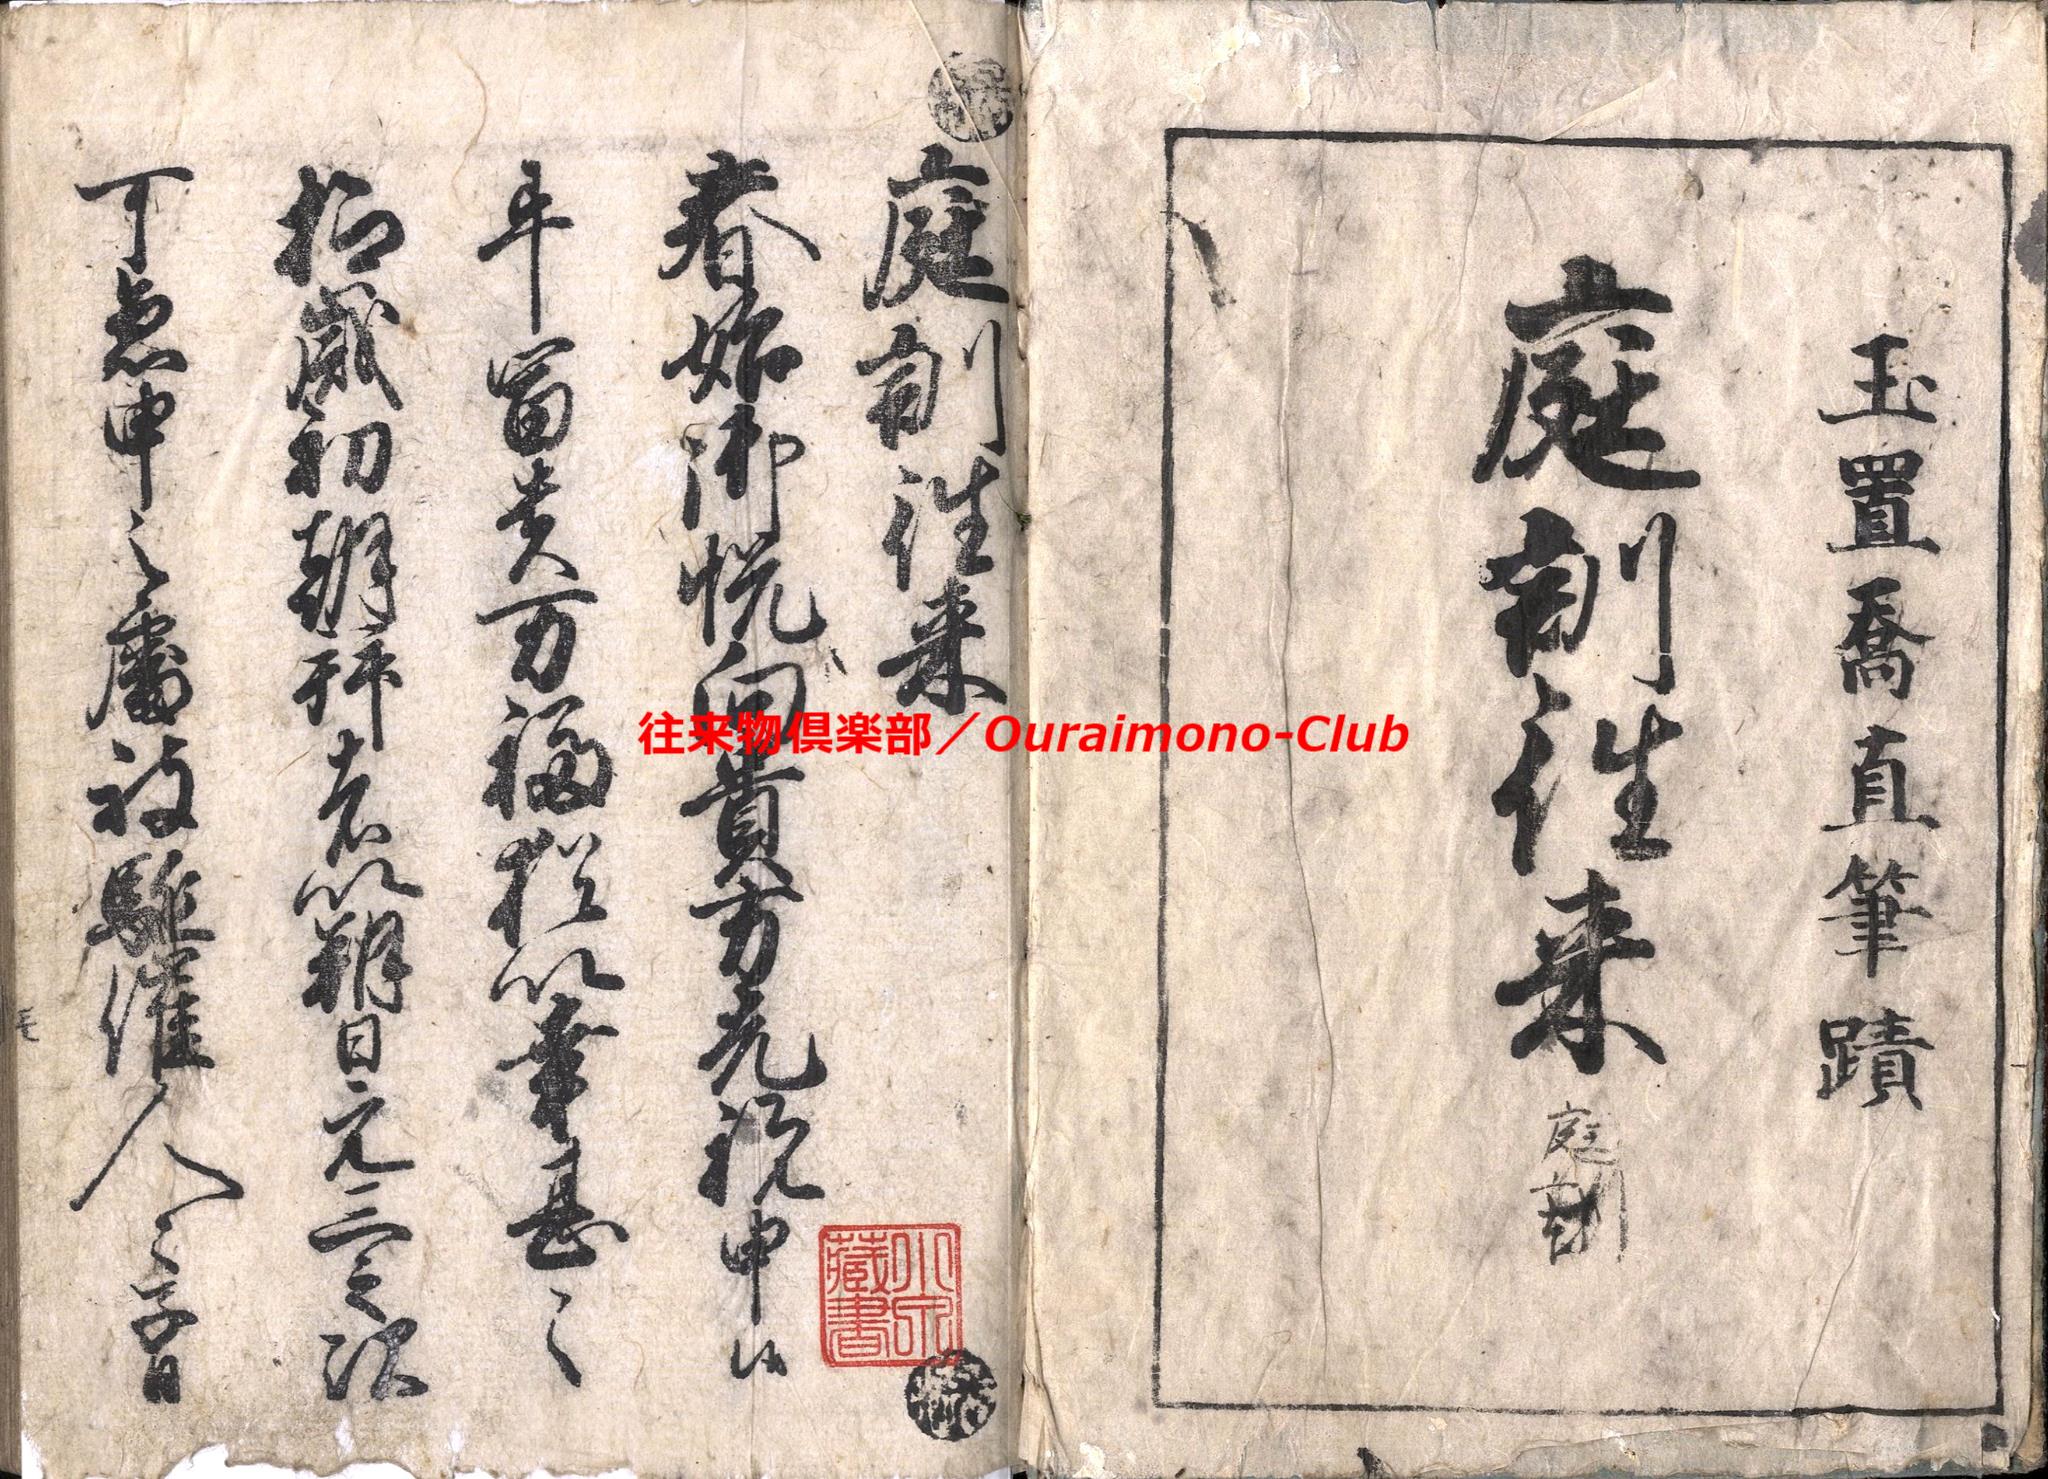 玉置喬直筆蹟
庭訓往来
庭訓
庭訓往来
春始御悦向貴方先祝申候
年富貴万福猶以幸甚々
抑歳初朝拝者以朔日元三之次
可急申之処被駈催人々子日
小泉蔵書
往来物倶楽部／Ouraimono-Club